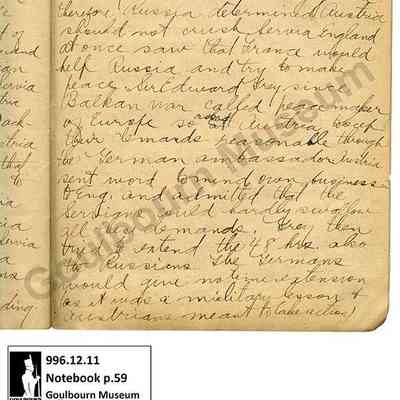 therefore Russia determined Austria
should not crush Servia England
at once saw that France would
help Russia and try to make
peace Sir Edward Grey since
Balkan war called peacemaker
of Europe so Austria to keep
their demands reasonable through
to German ambassador Austria
sent word to mind own business
to Eng. and admitted that the
Servians could hardly swallow
all her demands. Grey then
tried to extend the 48 hrs. also
to Russians The Germans
would give no time extension
as it was a military lesson &
Austrians meant to (take action)
of
and
an
ervia
tria
ack-
stria
that
to
ia
ervia
ia
ms
ding
Goulbourn Museum
996.12.11
Notebook p.59
Goulbourn Museum